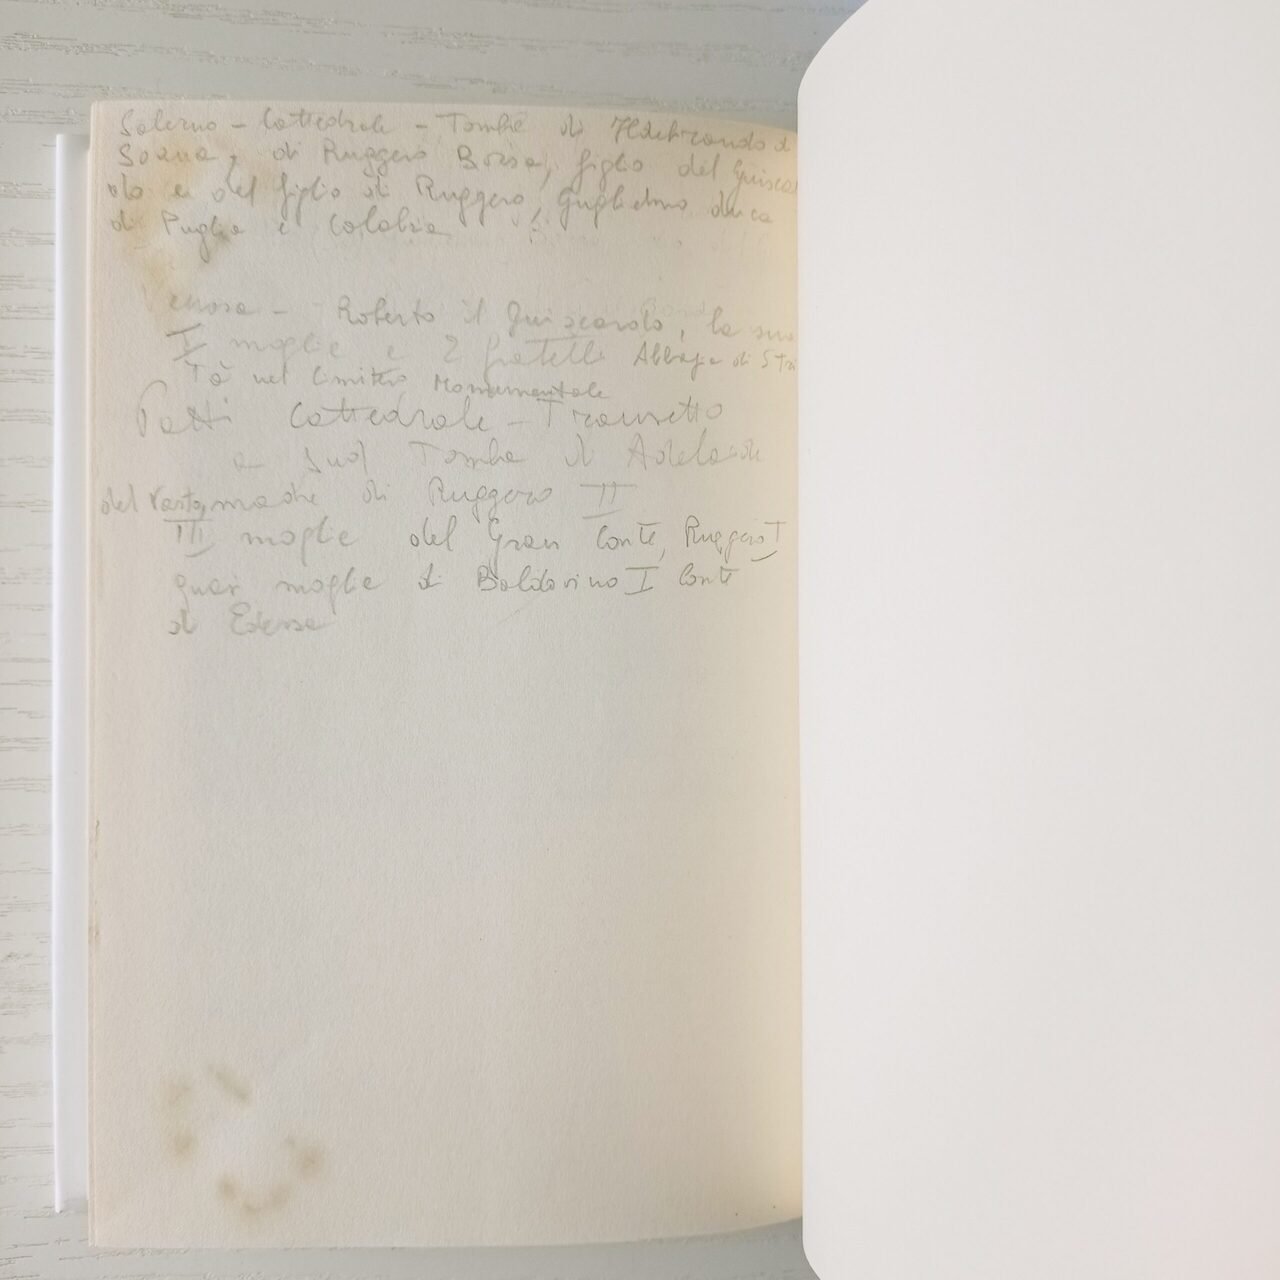 Salerno - Cattedrale - Tombe di Ildebrando d
Soana, di Ruggero Borsa, figlio del Guiscar
do e del figlio di Ruggero, Guglielmo duca
di Puglia e Calabria
enosa - Roberto il Guiscardo, la sua
I moglie e 2 fratelli Abbazia di S Tri
Tà nel Cimitero Monumentale
Patti Cattedrale - Transetto
a Sud Tomba di Adelaide
del Vasto, madre di Ruggero II
III moglie del Gran Conte, Ruggero I
quasi moglie di Baldovino I Conte
di Edessa